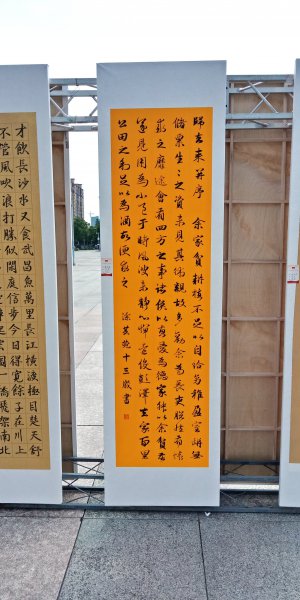 才飲長沙水又食武昌魚萬里長江橫渡極目楚天舒
不管風吹浪打勝似閒庭信步今日得寬餘子在川上
橋飛架南北
歸去來兮序 余家貧耕植不足以自給幼稚盈室缾無
儲粟生々之資未見其術親故多勸余為長吏脫然有懷
求之靡途會有四方之事諸侯以惠愛為德家叔以余貧苦
遂見用為小邑于時風波未靜心憚遠役彭澤去家百里
公田之利足以為酒故便求之 十三歲書